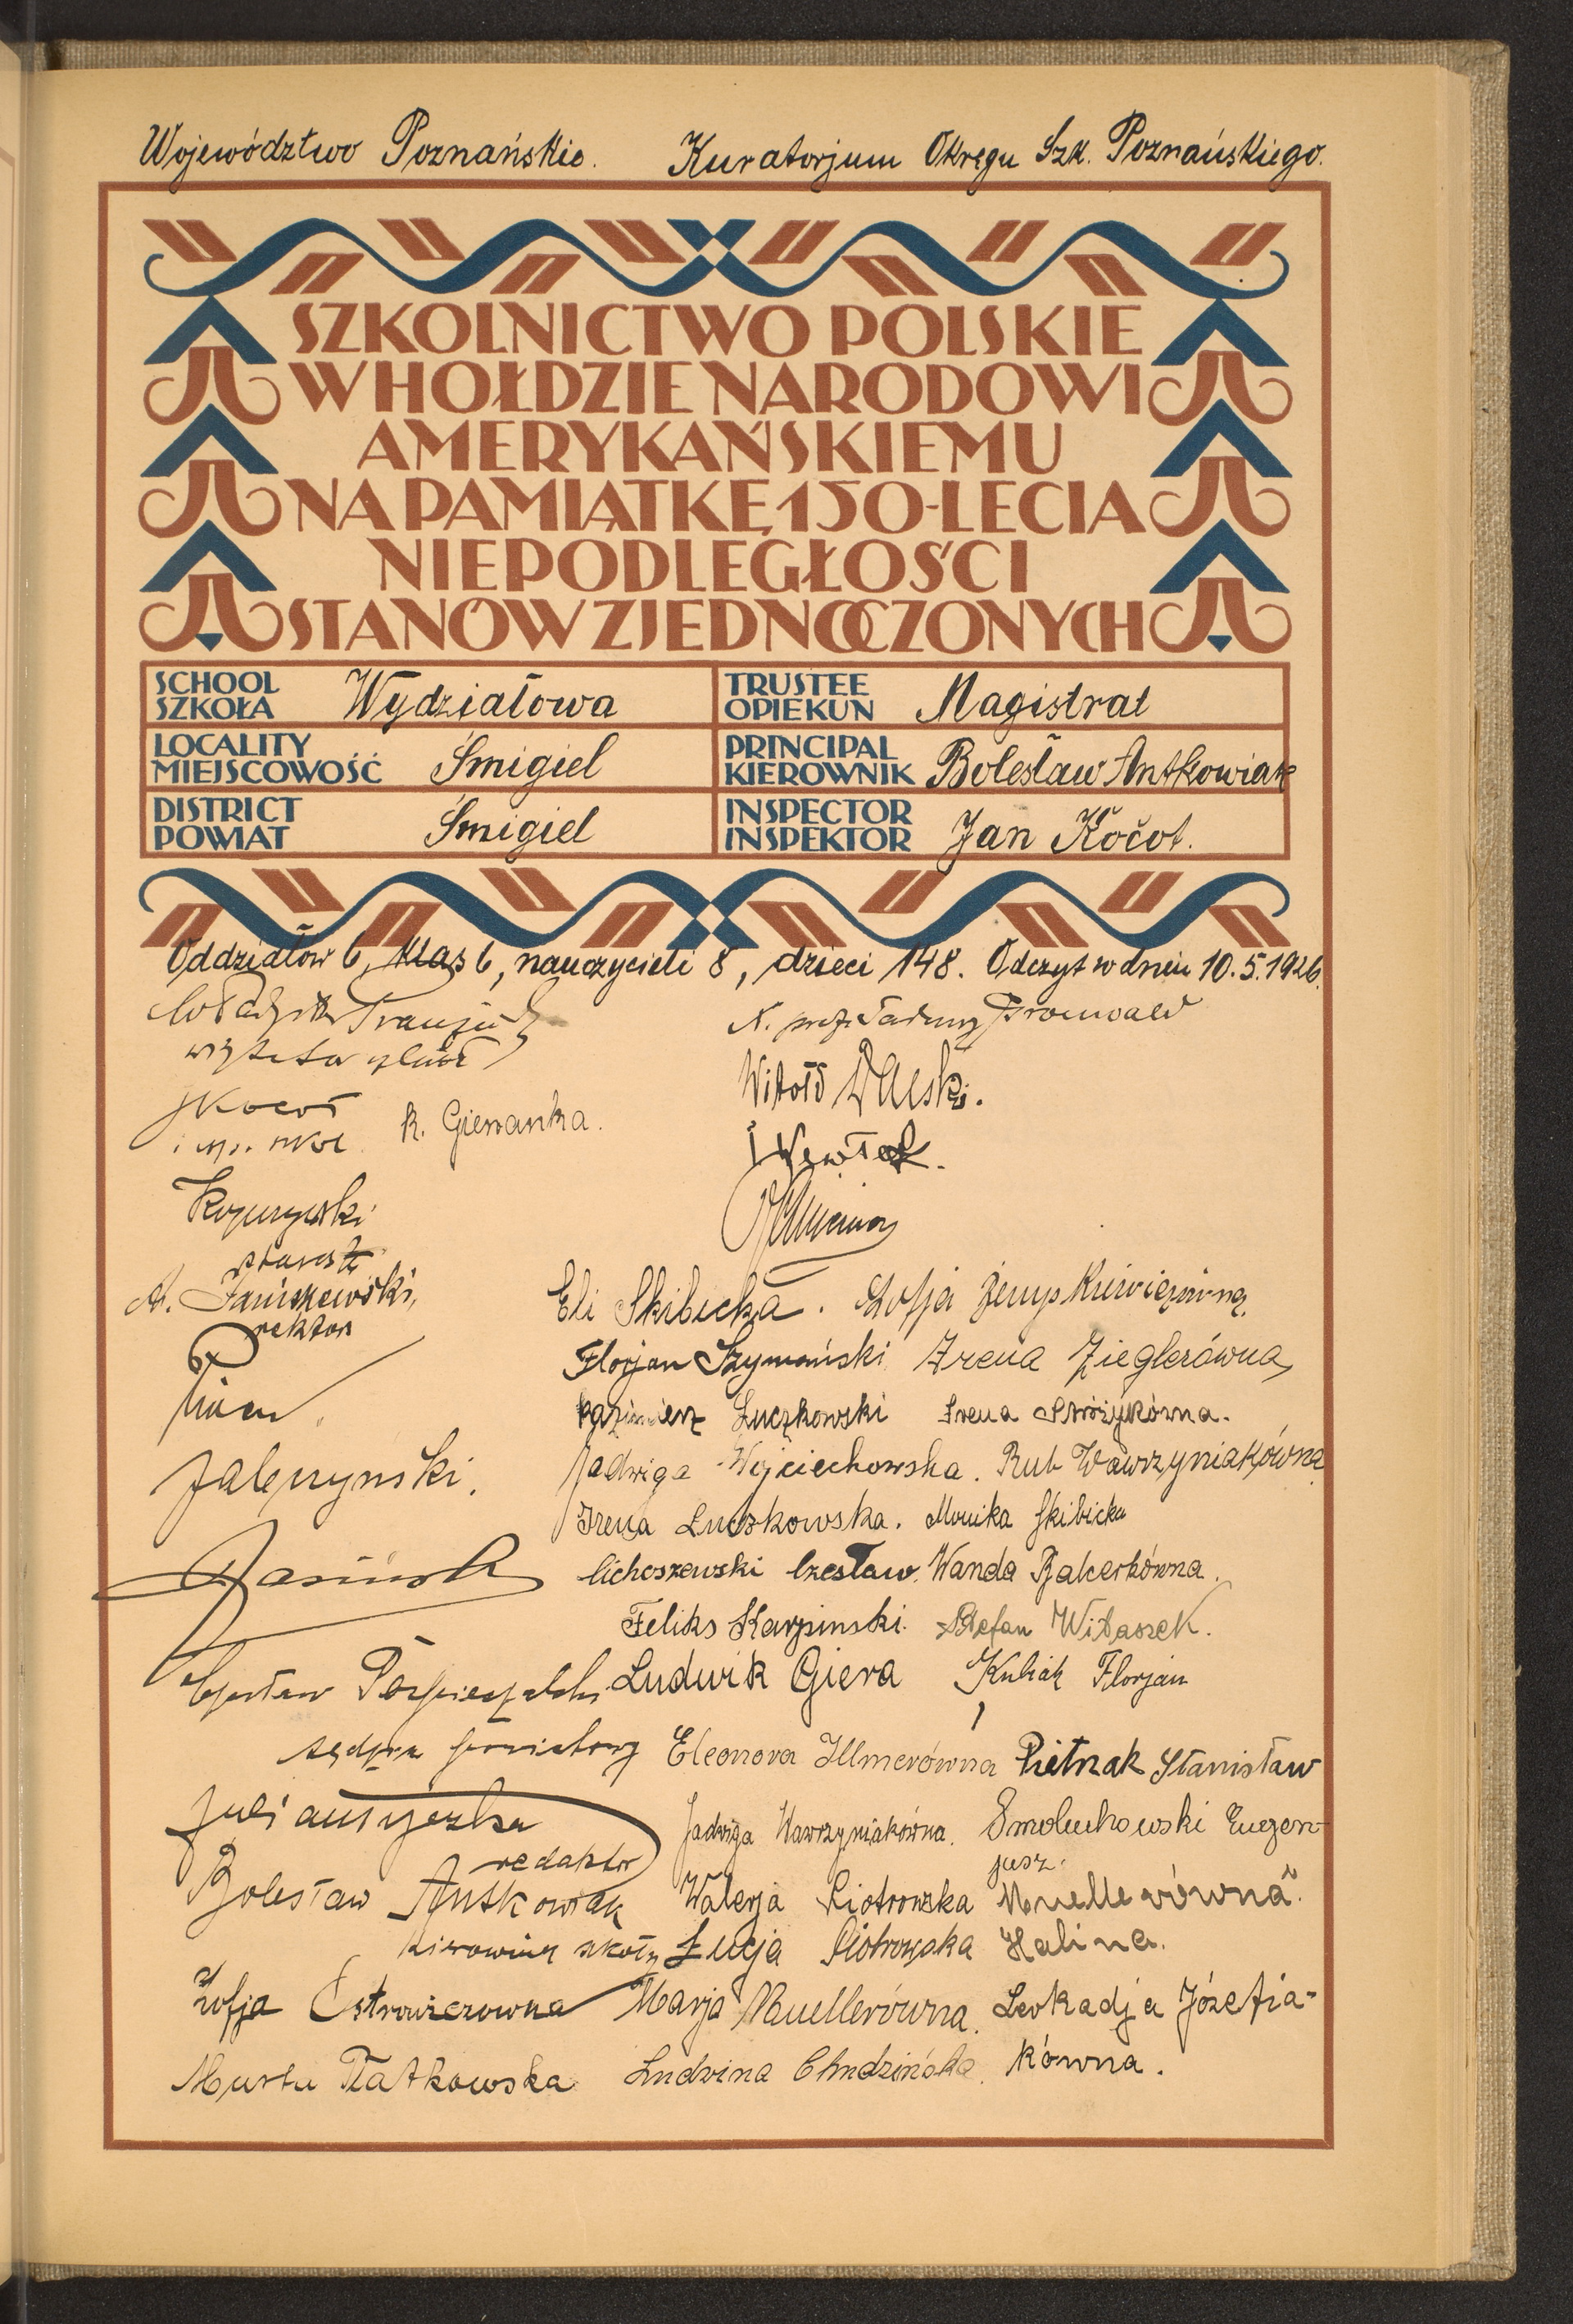 Województwo Poznańskie. Kuratorjum Okręgu Szk. Poznańskiego.
SZKOLNICTWO POLSKIE
W HOŁDZIE NARODOWI
AMERYKAŃSKIEMU
NA PAMIĄTKĘ 150-LECIA
NIEPODLEGŁOŚCI
STANÓW ZJEDNOCZONYCH
SCHOOL
SZKOŁA Wydziałowa
TRUSTEE
OPIEKUN Magistrat
LOCALITY
MIEJSCOWOŚĆ Śmigiel
PRINCIPAL
KIEROWNIK Bolesław Antkowiak
DISTRICT
POWIAT Śmigiel
INSPECTOR
INSPEKTOR Jan Kočot.
Oddziałów 6, klas 6, nauczycieli 8, dzieci 148. Odczyt w dniu 10.5.1926.
Witold
R. Gierianka.
starosta
A. Janiszewski,
rektor
Eli Skibicka. Zofja
Florjan Szymański Irena Zieglerówna
Kazimierz Łuczkowski Irena Stróżykówna.
Jadwiga Wojciechowska. Rut Wawrzyniakówna
Irena Luczkowska. Monika Skibicka
Cichoszewski Czesław. Wanda
Feliks Karpinski. Stefan Witaszek.
Ludwik Giera Kubiak Florjan
Czesław
sędzia powiatowy
Eleonora Illmerówna Pietrzak Stanisław
redaktor
Jadwiga Wawrzyniakówna. Smoluchowski Eugen-
jusz.
Bolesław Antkowiak
kierownik szkoły
Walerja Piotrowska Muellerówna
Łucja Piotrowska Halina.
Zofja Marja Muellerówna. Leokadja Józefia-
kówna.
Marta Ratkowska Ludwina Chudzińska.